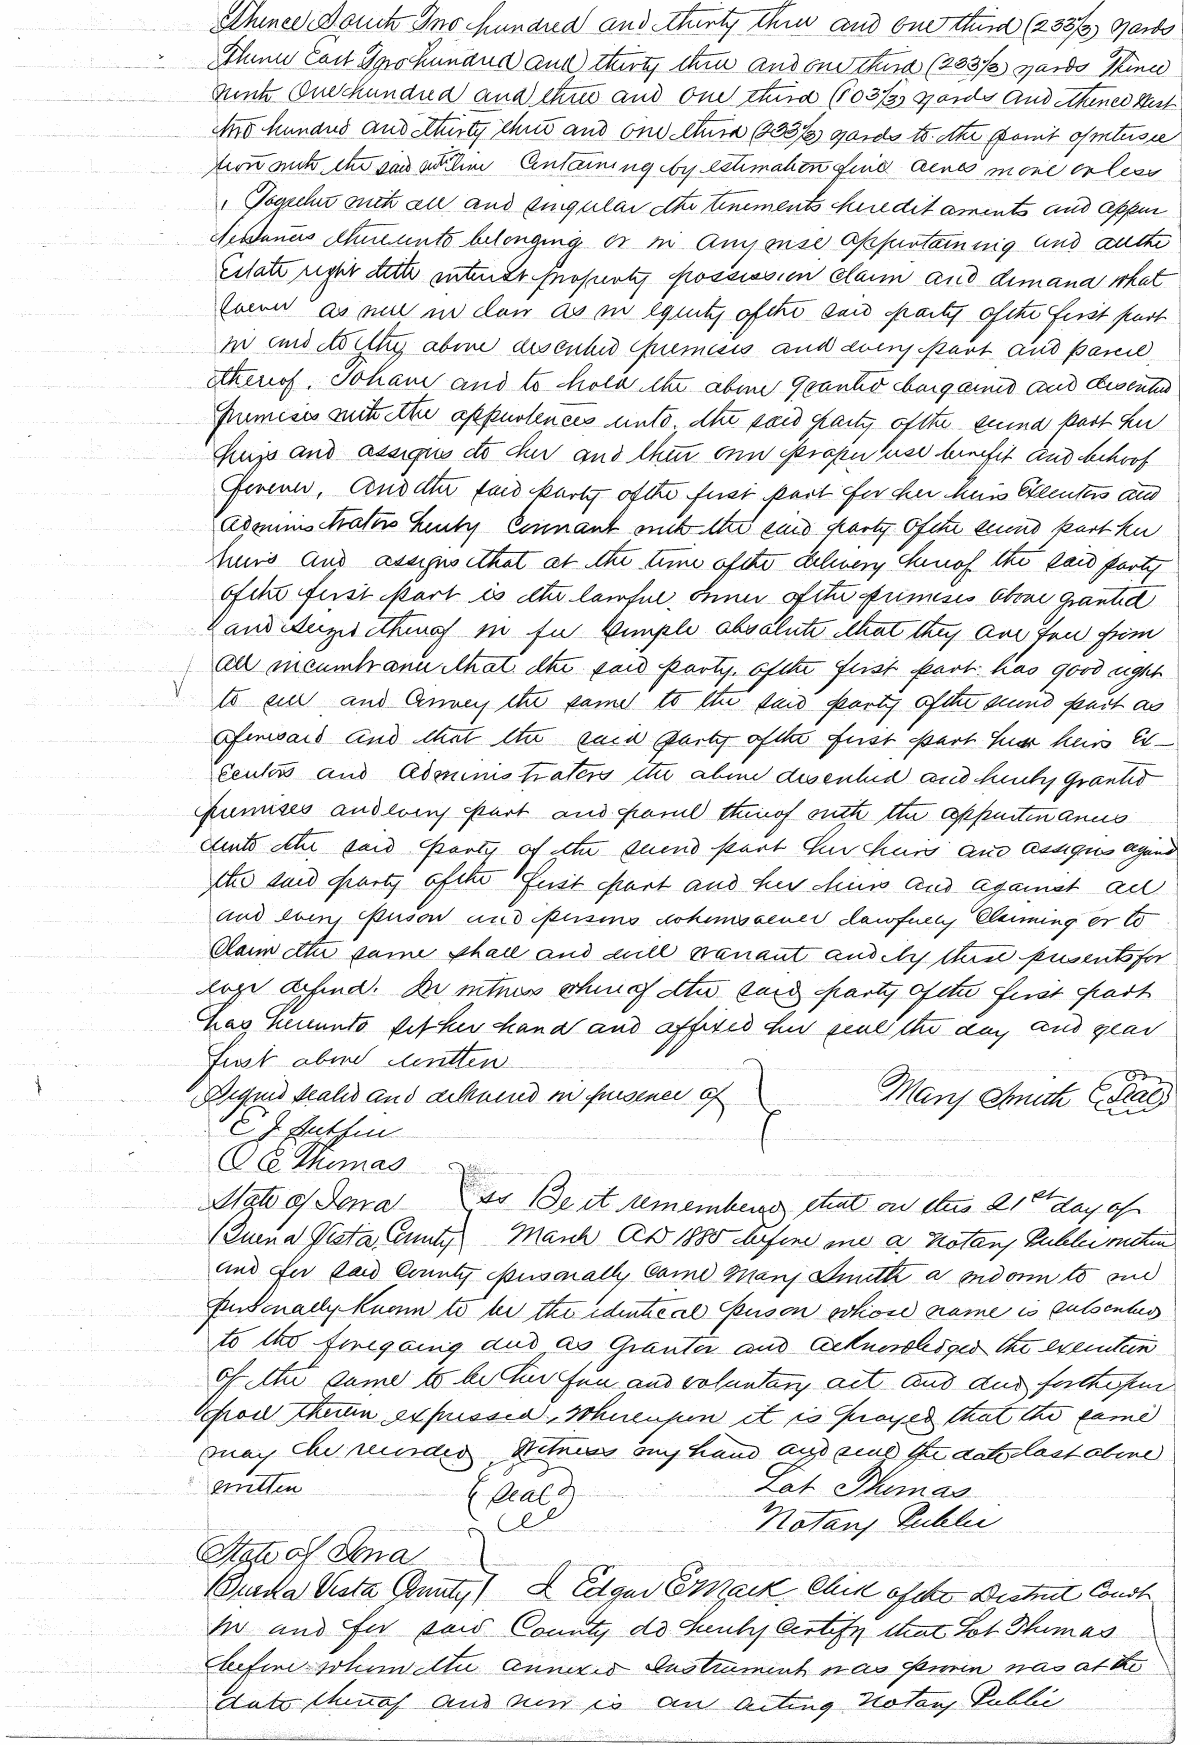 Thence South Two hundred and thirty three and one third (233⅓) yards
Thence East Two hundred and thirty three and one third (233⅓) yards Thence
north One hundred and three and one third (103⅓) yards and thence West
two hundred and thirty three and one third (233⅓) yards to the point of intersec
tion with the said line Containing by estimation five acres more or less
Together with all and singular the tenements heredit aments and appur
tenances thereunto belonging or in anywise appertaining and all the
Estate right title interest property possession claim and demand what
soever as well in law as in equity of the said party of the first part
in and to the above described premises and every part and parcel
thereof. To have and to hold the above granted bargained and described
premises with the appurtences unto the said party of the second part her
heirs and assigns to her and their own proper use benefit and behoof
forever, And the said party of the first part for her heirs Executors and
administrators hereby Covenant with the said party of the second part her
heirs and assigns that at the time of the delivery hereof the said party
of the first part is the lawful owner of the premises above granted
and seized thereof in fee simple absolute that they are free from
all incumbrance that the said party of the first part has good right
to sell and Convey the same to the said party of the second part as
aforesaid and that the said party of the first part her heirs Ex-
ecutors and administrators the above described and hereby granted
premises and every part and parcel thereof with the appurtenances
unto the said party of the second part her heirs and assigns against
the said party of the first part and her heirs and against all
and every person and persons whomsoever lawfully Claiming or to
Claim the same shall and will warrant and by these presents for
ever defend. In witness whereof the said party of the first part
has hereunto set her hand and affixed her seal the day and year
first above written
Signed sealed and delivered in presence of Mary Smith (Seal)
E J
O E Thomas
State of Iowa ss Be it remembered that on this 21st day of
Buena Vista County March AD 1885 before me a Notary Public within
and for said County personally came Mary Smith a widow to me
personally known to be the identical person whose name is subscribed
to the foregoing deed as Grantor and acknowledged the execution
of the same to be her free and voluntary act and deed for the pur
pose therein expressed, whereupon it is prayed that the same
may be recorded Witness my hand and seal the date last above
written (Seal) Lot Thomas
Notary Public
State of Iowa
Buena Vista County I Edgar E Mack Clerk of the District Court
in and for said County do hereby Certify that Lot Thomas
before whom the annexed instrument was proven was at the
date thereof and now is an acting Notary Public